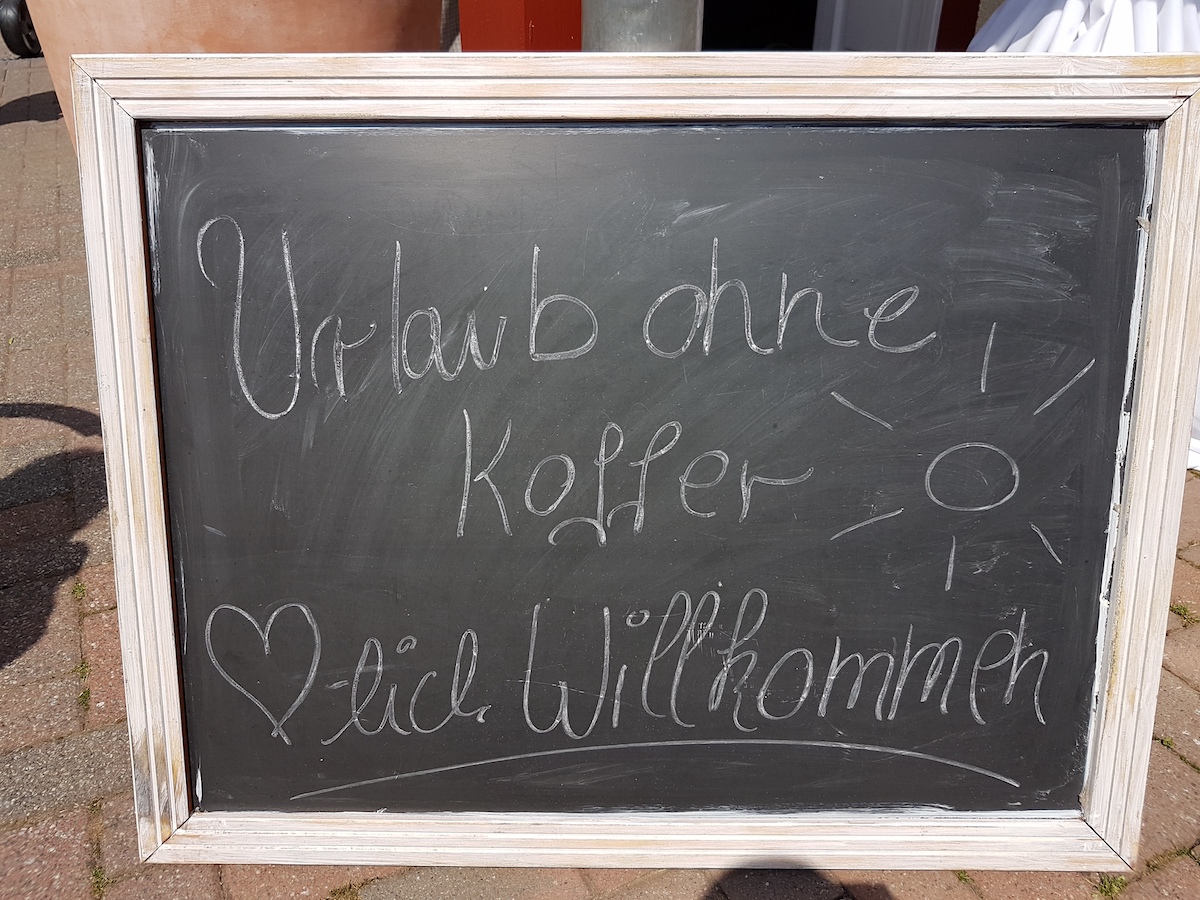 Urlaub ohne
Koffer
♡-lich Willkommen